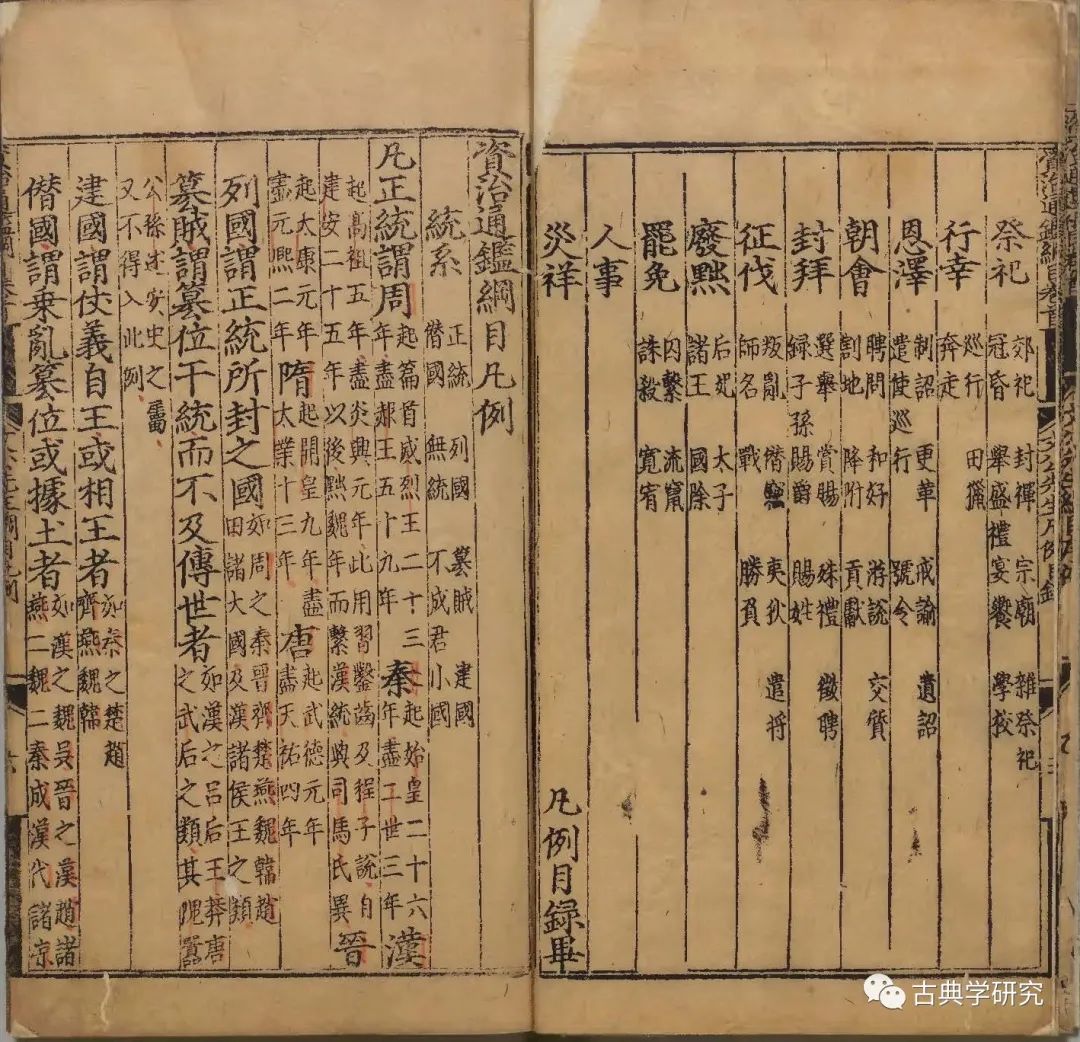 祭祀 郊祀 封禪 宗廟 雜祭祀 冠昏 舉盛禮 宴饗 學校
行幸 巡行 田獵 奔走
恩澤 制詔 更革 戒諭 遺詔 遣使巡行 號令
朝會 聘問 和好 游說 交質 割地 降附 貢獻
封拜 選舉 賞賜 殊禮 徵聘 録子孫 賜爵 賜姓
征伐 叛亂 僭竊 夷狄 遣將 師名 戰 勝負
廢黜 后妃 太子 諸王 國除
罷免 囚繫 流竄 誅殺 寬宥
人事
災祥
凡例目録畢
資治通鑑綱目凡例
統系 正統 列國 篡賊 建國 僭國 無統 不成君小國
凡正統謂周 起篇首威烈王二十三年盡赧王五十九年 秦 起始皇二十六年盡二世三年 漢
起高祖五年盡炎興元年此用習鑿齒及程子說自建安二十五年以後黜魏年而繫漢統與司馬氏異 晉
起太康元年盡元熙二年 隋 起開皇九年盡大業十三年 唐 起武德元年盡天祐四年
列國謂正統所封之國 如周之秦晉齊楚燕魏韓趙田諸大國及漢諸侯王之類
篡賊謂篡位干統而不及傳世者 如漢之呂后王莽唐之武后之類其隗囂
公孫述安史之屬又不得入此例
建國謂仗義自王或相王者 如秦之楚趙齊燕魏韓
僭國謂乘亂篡位或據土者 如漢之魏吳晉之漢趙諸燕二魏二秦成漢代諸涼
古典学研究